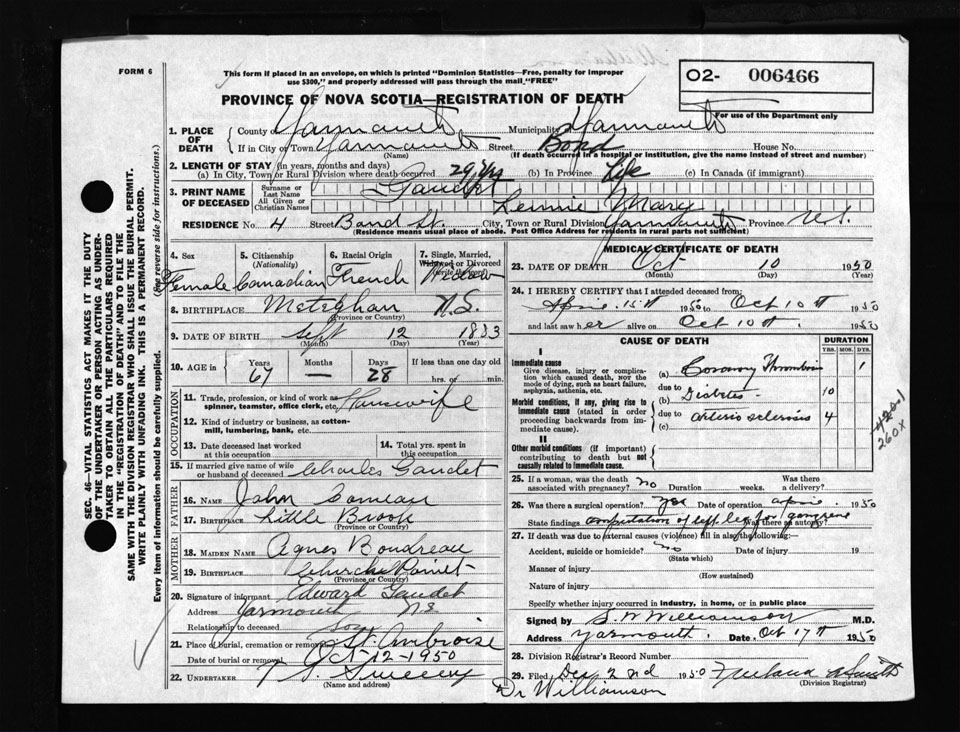 FORM 6
This form if placed in an envelope, on which is printed "Dominion Statistics—Free, penalty for improper
use $300," and properly addressed will pass through the mail "FREE"
O2- 006466
For use of the Department only
PROVINCE OF NOVA SCOTIA—REGISTRATION OF DEATH
1. PLACE OF DEATH County of Yarmouth Municipality of Yarmouth
If in City or Town Yarmouth (Name) Street Bond House No.
(If death occurred in a hospital or institution, give the name instead of street and number)
2. LENGTH OF STAY (in years, months and days)
(a) In City, Town or Rural Division where death occurred 29 yrs (b) In Province Life (c) In Canada (if immigrant)
3. PRINT NAME OF DECEASED Surname or Last Name Gaudet
All Given or Christian Names Lennie Mary
RESIDENCE No. 4 Street Bond St. City, Town or Rural Division Yarmouth Province N.S.
(Residence means usual place of abode. Post Office Address for residents in rural parts not sufficient)
4. Sex Female
5. Citizenship (Nationality) Canadian
6. Racial Origin French
7. Single, Married, Widowed or Divorced (write the word) Widow
8. BIRTHPLACE Meteghan N.S.
(Province or Country)
9. DATE OF BIRTH Sept 12 1883
(Month) (Day) (Year)
10. AGE in Years 67 Months — Days 28 If less than one day old hrs. or min.
OCCUPATION
11. Trade, profession, or kind of work as spinner, teamster, office clerk, etc. Housewife
12. Kind of industry or business, as cotton-mill, lumbering, bank, etc.
13. Date deceased last worked at this occupation
14. Total yrs. spent in this occupation
15. If married give name of wife or husband of deceased Charles Gaudet
FATHER
16. NAME John Comeau
17. BIRTHPLACE Little Brook
(Province or Country)
MOTHER
18. MAIDEN NAME Agnes Boudreau
19. BIRTHPLACE Church Point
(Province or Country)
20. Signature of informant Edward Gaudet
Address Yarmouth N S
Relationship to deceased son
21. Place of burial, cremation or removal St. Ambroise
Date of burial or removal Oct-12-1950
22. UNDERTAKER Sweeny
(Name and address)
MEDICAL CERTIFICATE OF DEATH
23. DATE OF DEATH Oct 10 1950
(Month) (Day)
24. I HEREBY CERTIFY that I attended deceased from:
April 15th 1950 to Oct 10th 1950
and last saw her alive on Oct 10th 1950
CAUSE OF DEATH
DURATION
YRS. MOS. DYS.
I
Immediate cause
Give disease, injury or complication which caused death, not the mode of dying, such as heart failure, asphyxia, asthenia, etc.
(a) Coronary Thrombosis 1
due to
(b) Diabetes 10
Morbid conditions, if any, giving rise to immediate cause (stated in order proceeding backwards from immediate cause).
due to
(c) arterio sclerosis 4
II
Other morbid conditions (if important) contributing to death but not causally related to immediate cause.
4201
260X
25. If a woman, was the death associated with pregnancy? no Duration weeks. Was there a delivery?
26. Was there a surgical operation? yes Date of operation April 1950
State findings amputation of left leg for gangrene Was there an autopsy?
27. If death was due to external causes (violence) fill in also the following:—
Accident, suicide or homicide? no Date of injury 19
(State which)
Manner of injury
(How sustained)
Nature of injury
Specify whether injury occurred in industry, in home, or in public place
Signed by S. W Williamson M.D.
Address Yarmouth. Date Oct 17th 1950
28. Division Registrar's Record Number
29. Filed Dec 2nd 1950
(Division Registrar)
Dr Williamson
SEC. 46—VITAL STATISTICS ACT MAKES IT THE DUTY
OF THE UNDERTAKER OR PERSON ACTING AS UNDER-
TAKER TO OBTAIN ALL THE PARTICULARS REQUIRED
IN THE "REGISTRATION OF DEATH" AND TO FILE THE
SAME WITH THE DIVISION REGISTRAR WHO SHALL ISSUE THE BURIAL PERMIT.
WRITE PLAINLY WITH UNFADING INK. THIS IS A PERMANENT RECORD.
Every item of information should be carefully supplied. (See reverse side for instructions.)